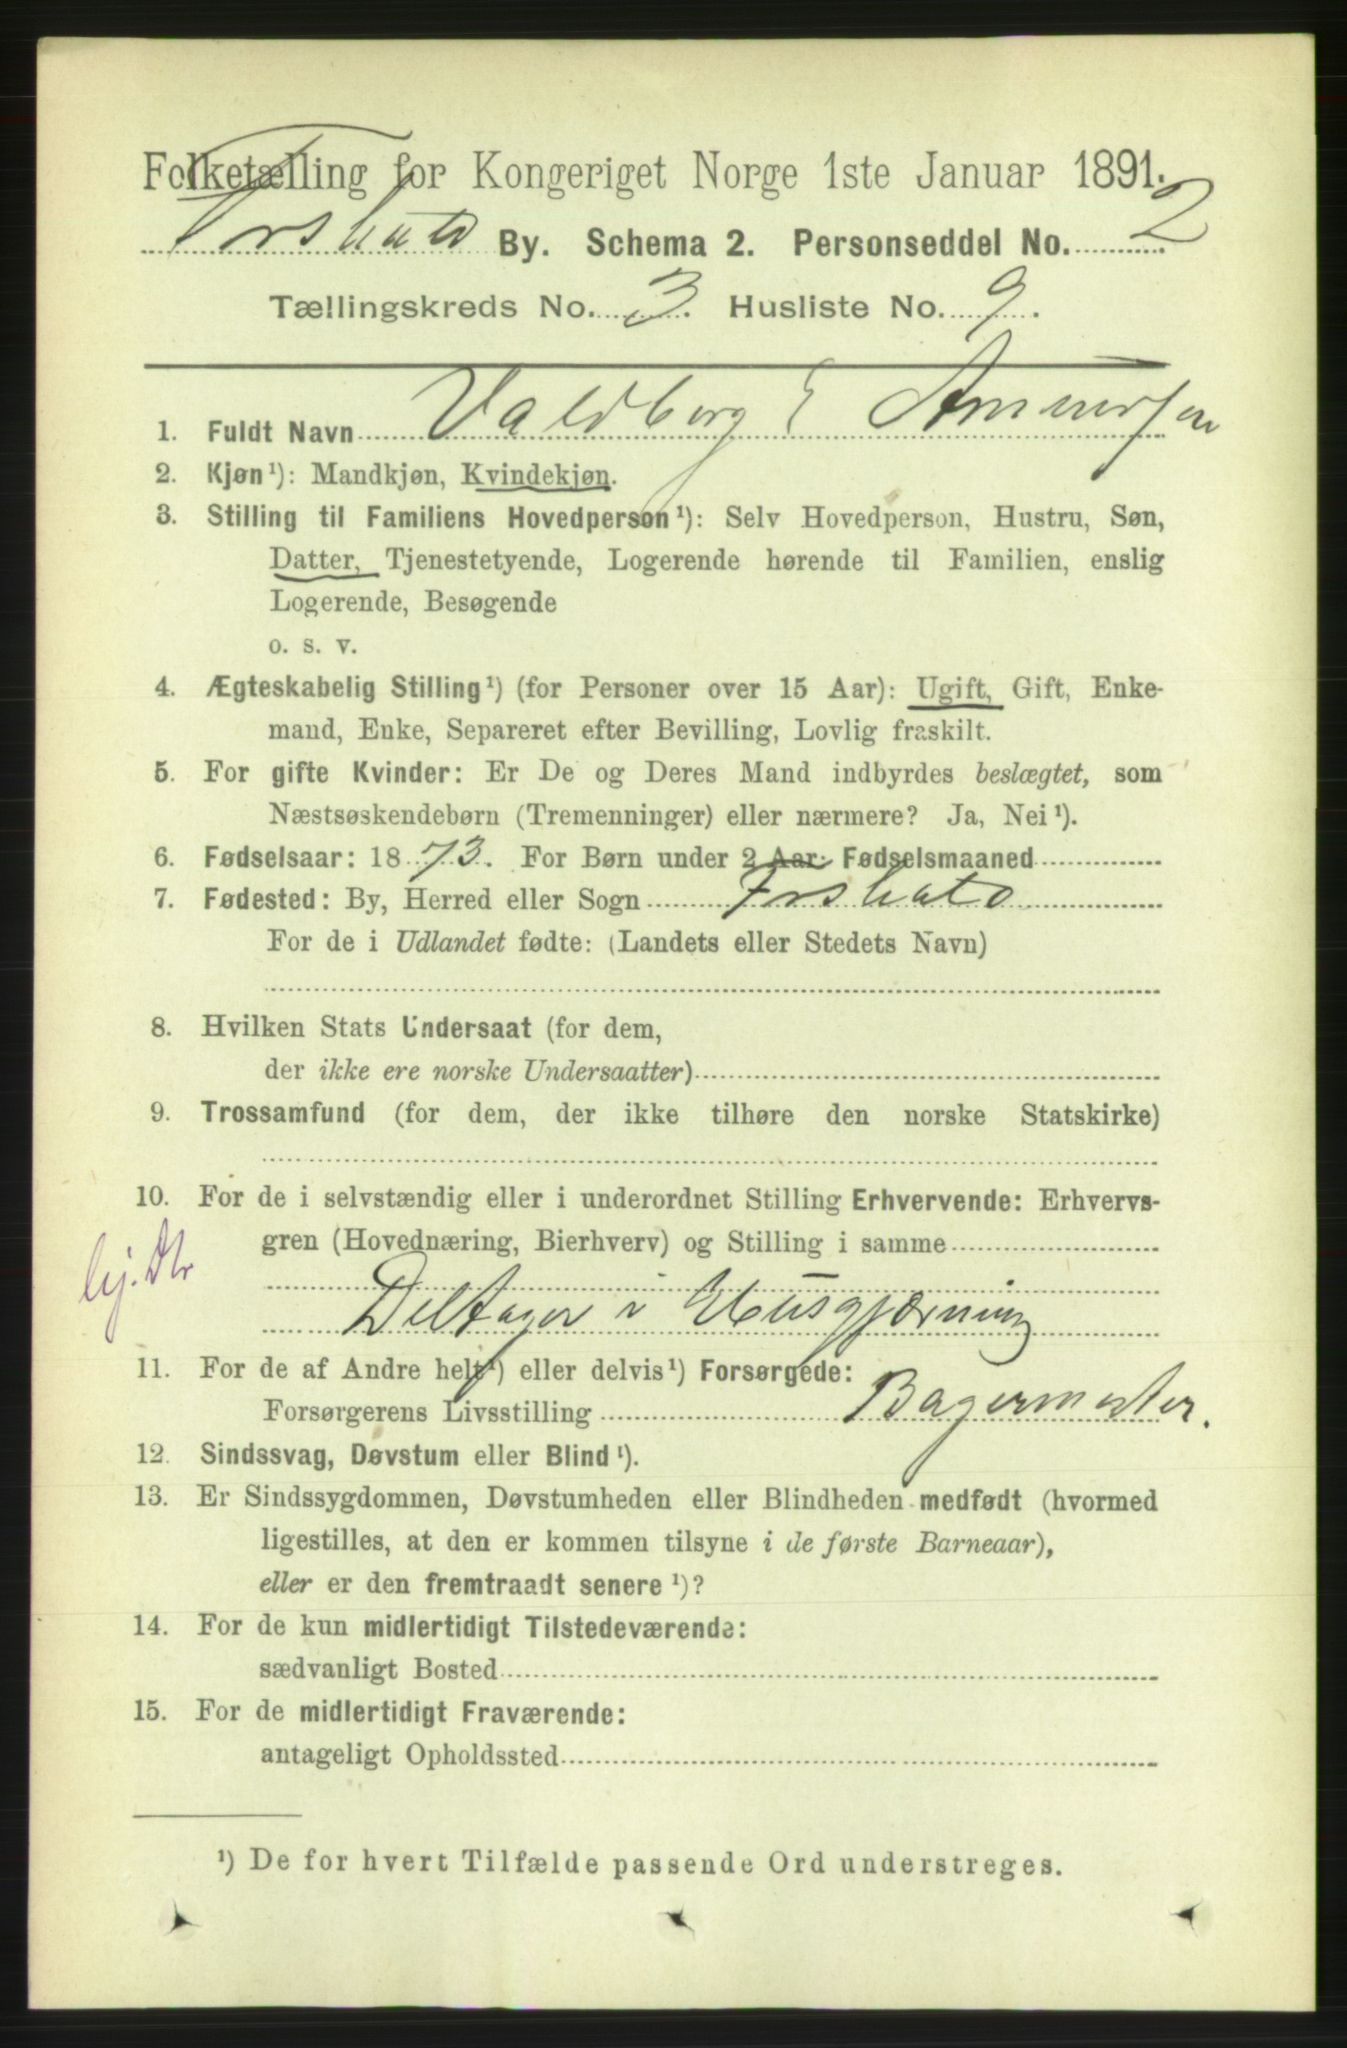 Folketælling for Kongeriget Norge 1ste Januar 1891.
Frshald By. Schema 2. Personseddel No. 2
Tællingskreds No. 3. Husliste No. 9.
1. Fuldt Navn Valdborg E Ammersen
2. Kjøn¹): Mandkjøn, Kvindekjøn.
3. Stilling til Familiens Hovedperson¹): Selv Hovedperson, Hustru, Søn,
Datter, Tjenestetyende, Logerende hørende til Familien, enslig
Logerende, Besøgende
o. s. v.
4. Ægteskabelig Stilling¹) (for Personer over 15 Aar): Ugift, Gift, Enke-
mand, Enke, Separeret efter Bevilling, Lovlig fraskilt.
5. For gifte Kvinder: Er De og Deres Mand indbyrdes beslægtet, som
Næstsøskendebørn (Tremenninger) eller nærmere? Ja, Nei¹).
6. Fødselsaar: 1873. For Børn under 2 Aar: Fødselsmaaned
7. Fødested: By, Herred eller Sogn Frshald
For de i Udlandet fødte: (Landets eller Stedets Navn)
8. Hvilken Stats Undersaat (for dem,
der ikke ere norske Undersaatter)
9. Trossamfund (for dem, der ikke tilhøre den norske Statskirke)
10. For de i selvstændig eller i underordnet Stilling Erhvervende: Erhvervs-
gren (Hovednæring, Bierhverv) og Stilling i samme
hj. Dtr
Deltager i Husgjærning
11. For de af Andre helt¹) eller delvis¹) Forsørgede:
Forsørgerens Livsstilling Bagermester.
12. Sindssvag, Døvstum eller Blind¹).
13. Er Sindssygdommen, Døvstumheden eller Blindheden medfødt (hvormed
ligestilles, at den er kommen tilsyne i de første Barneaar),
eller er den fremtraadt senere¹)?
14. For de kun midlertidigt Tilstedeværende:
sædvanligt Bosted
15. For de midlertidigt Fraværende:
antageligt Opholdssted
¹) De for hvert Tilfælde passende Ord understreges.